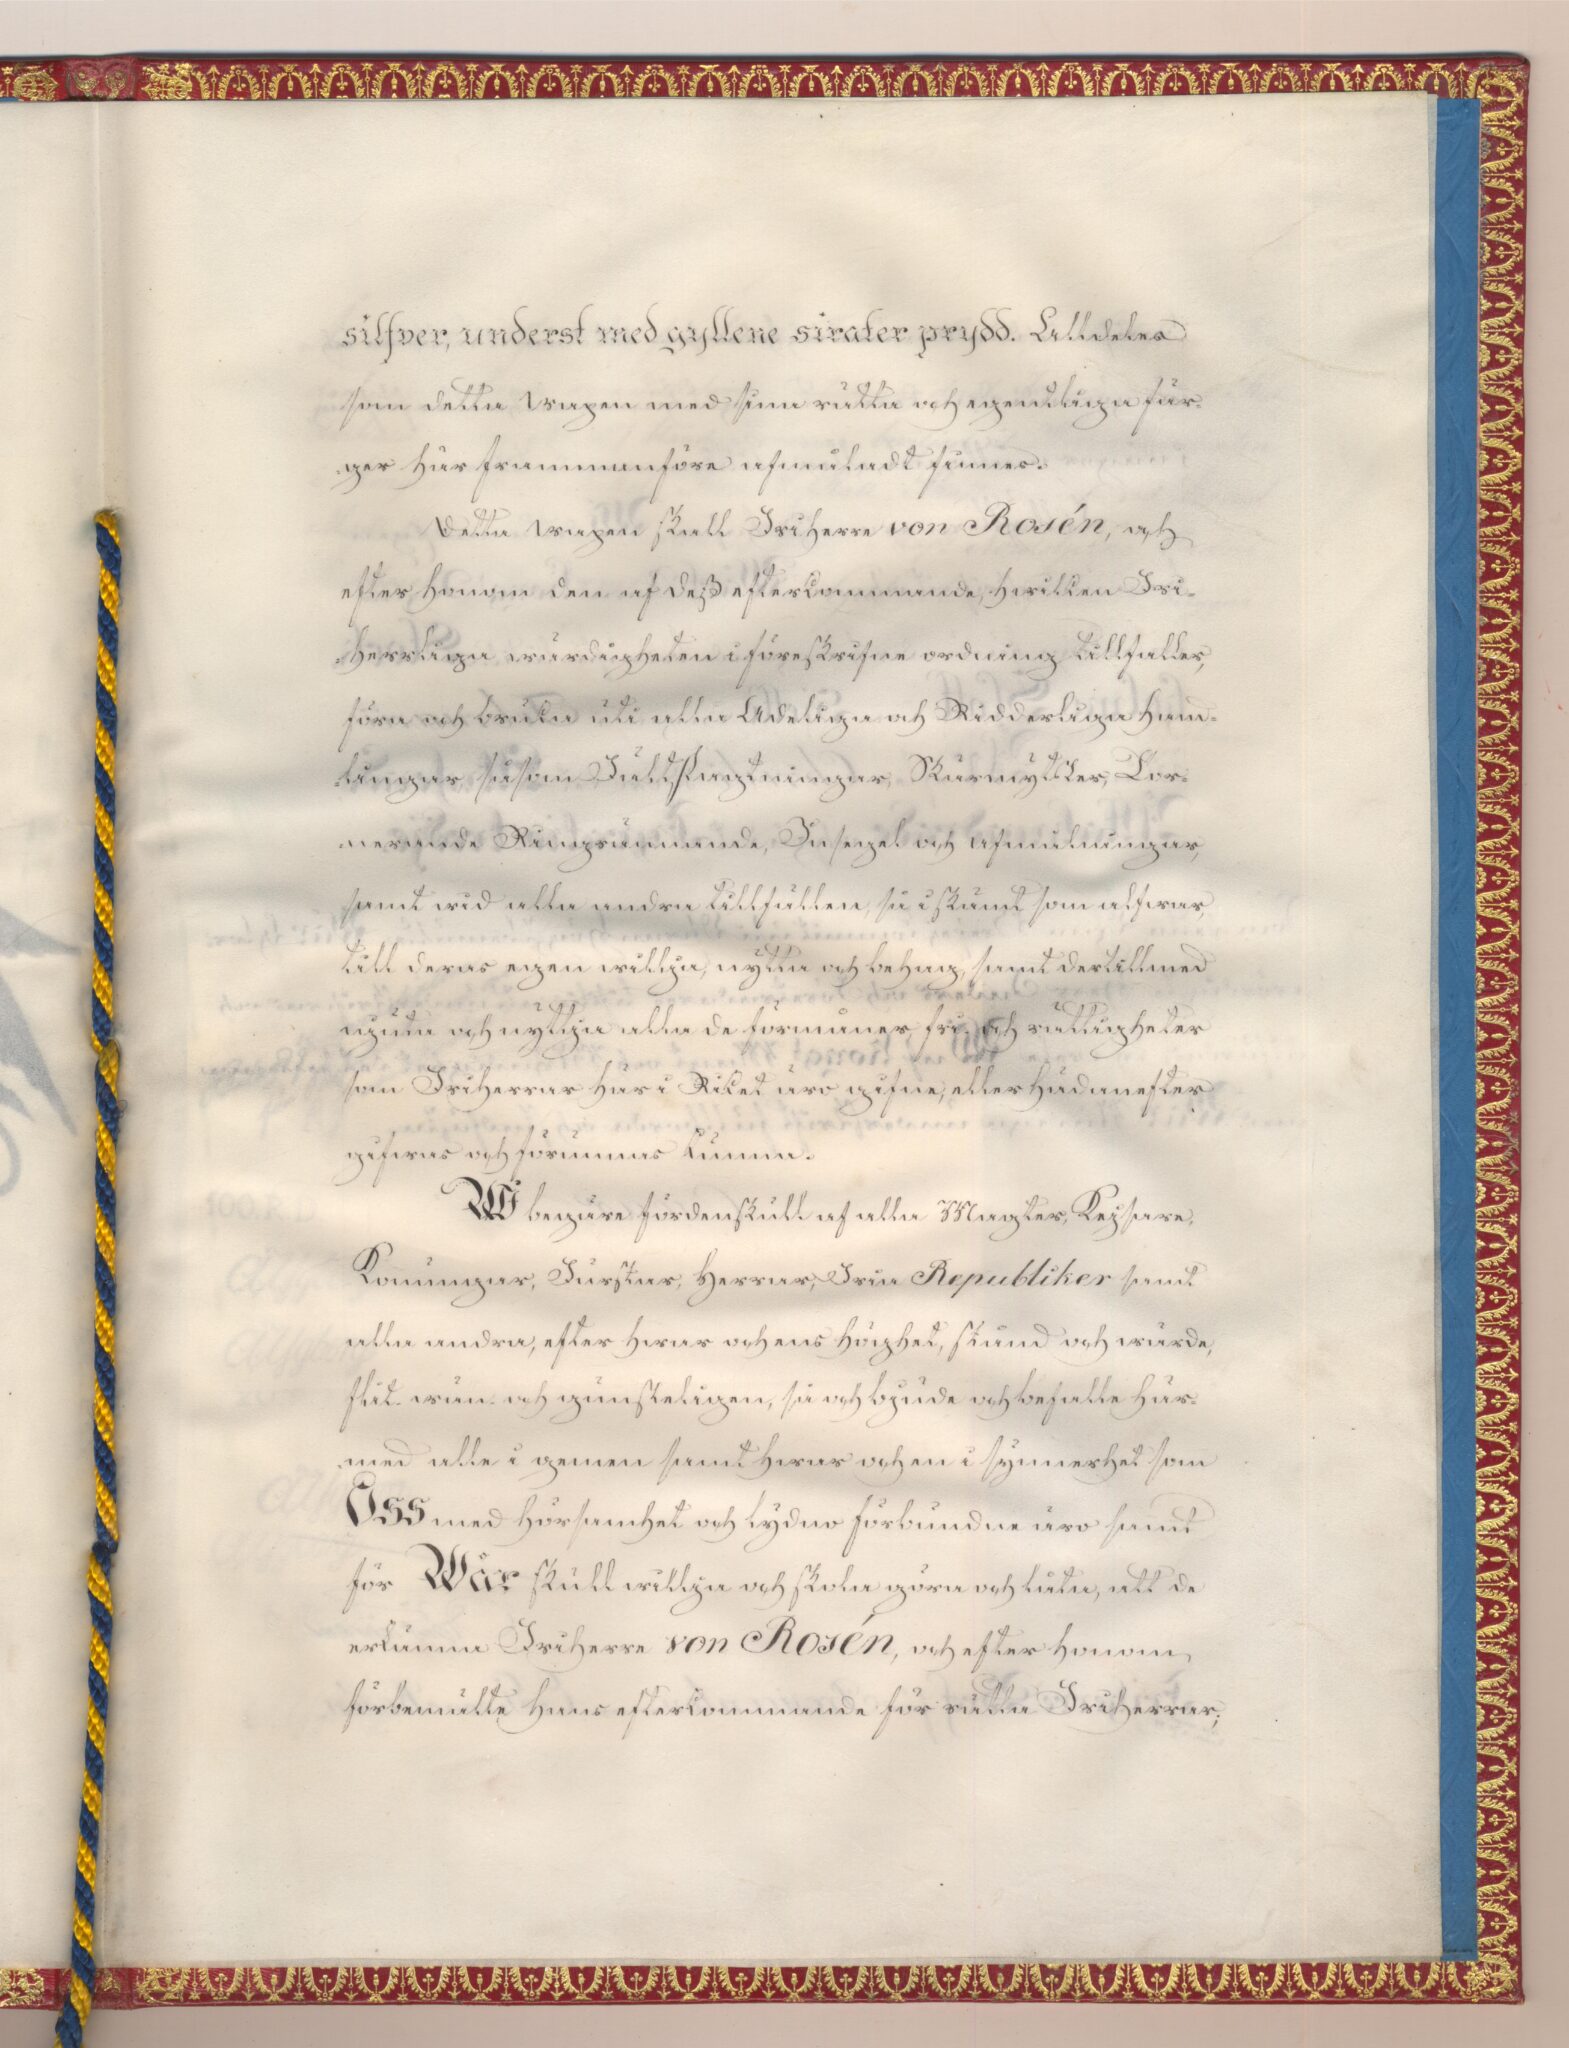 silfver, underst med gyllene sirater prydd. Alldeles
som detta Wapen med sina rätta och egentliga fär-
ger här frammanföre afmåladt finnes.
Detta Wapen skall Friherre von Rosén, och
efter honom den af deß efterkommande, hwilken Fri-
herrliga wärdigheten i föreskrifne ordning tillfaller,
föra och bruka uti alla Adeliga och Ridderliga Han-
lingar, såsom Fältslagtningar, Skärmytsler, Tor-
nerande Ringrännande, Insegel och Afmålningar,
samt wid alla andra tillfällen, så i skämt som alfwar,
till deras egen willja, nytta och behag, samt dertillmed
njuta och nyttja alla de förmåner, fri- och rättigheter
som Friherrar här i Riket äro gifne, eller hädanefter
gifwas och förunnas kunna.
Wi begäre fördenskull af alla Magter, Keysare,
Konungar, Furstar, Herrar, Fria Republiker samt
alla andra, efter hwar och ens höghet, stånd och wärde,
flit- wän- och gunsteligen, så och bjude och befalle här-
med alle i gemen samt hwar och en i synnerhet som
Oss med hörsamhet och lydno förbundne äro samt
för Wår skull willja och skola göra och låta, att de
erkänna Friherre von Rosén, och efter honom
förbemälte hans efterkommande för rätta Friherrar;